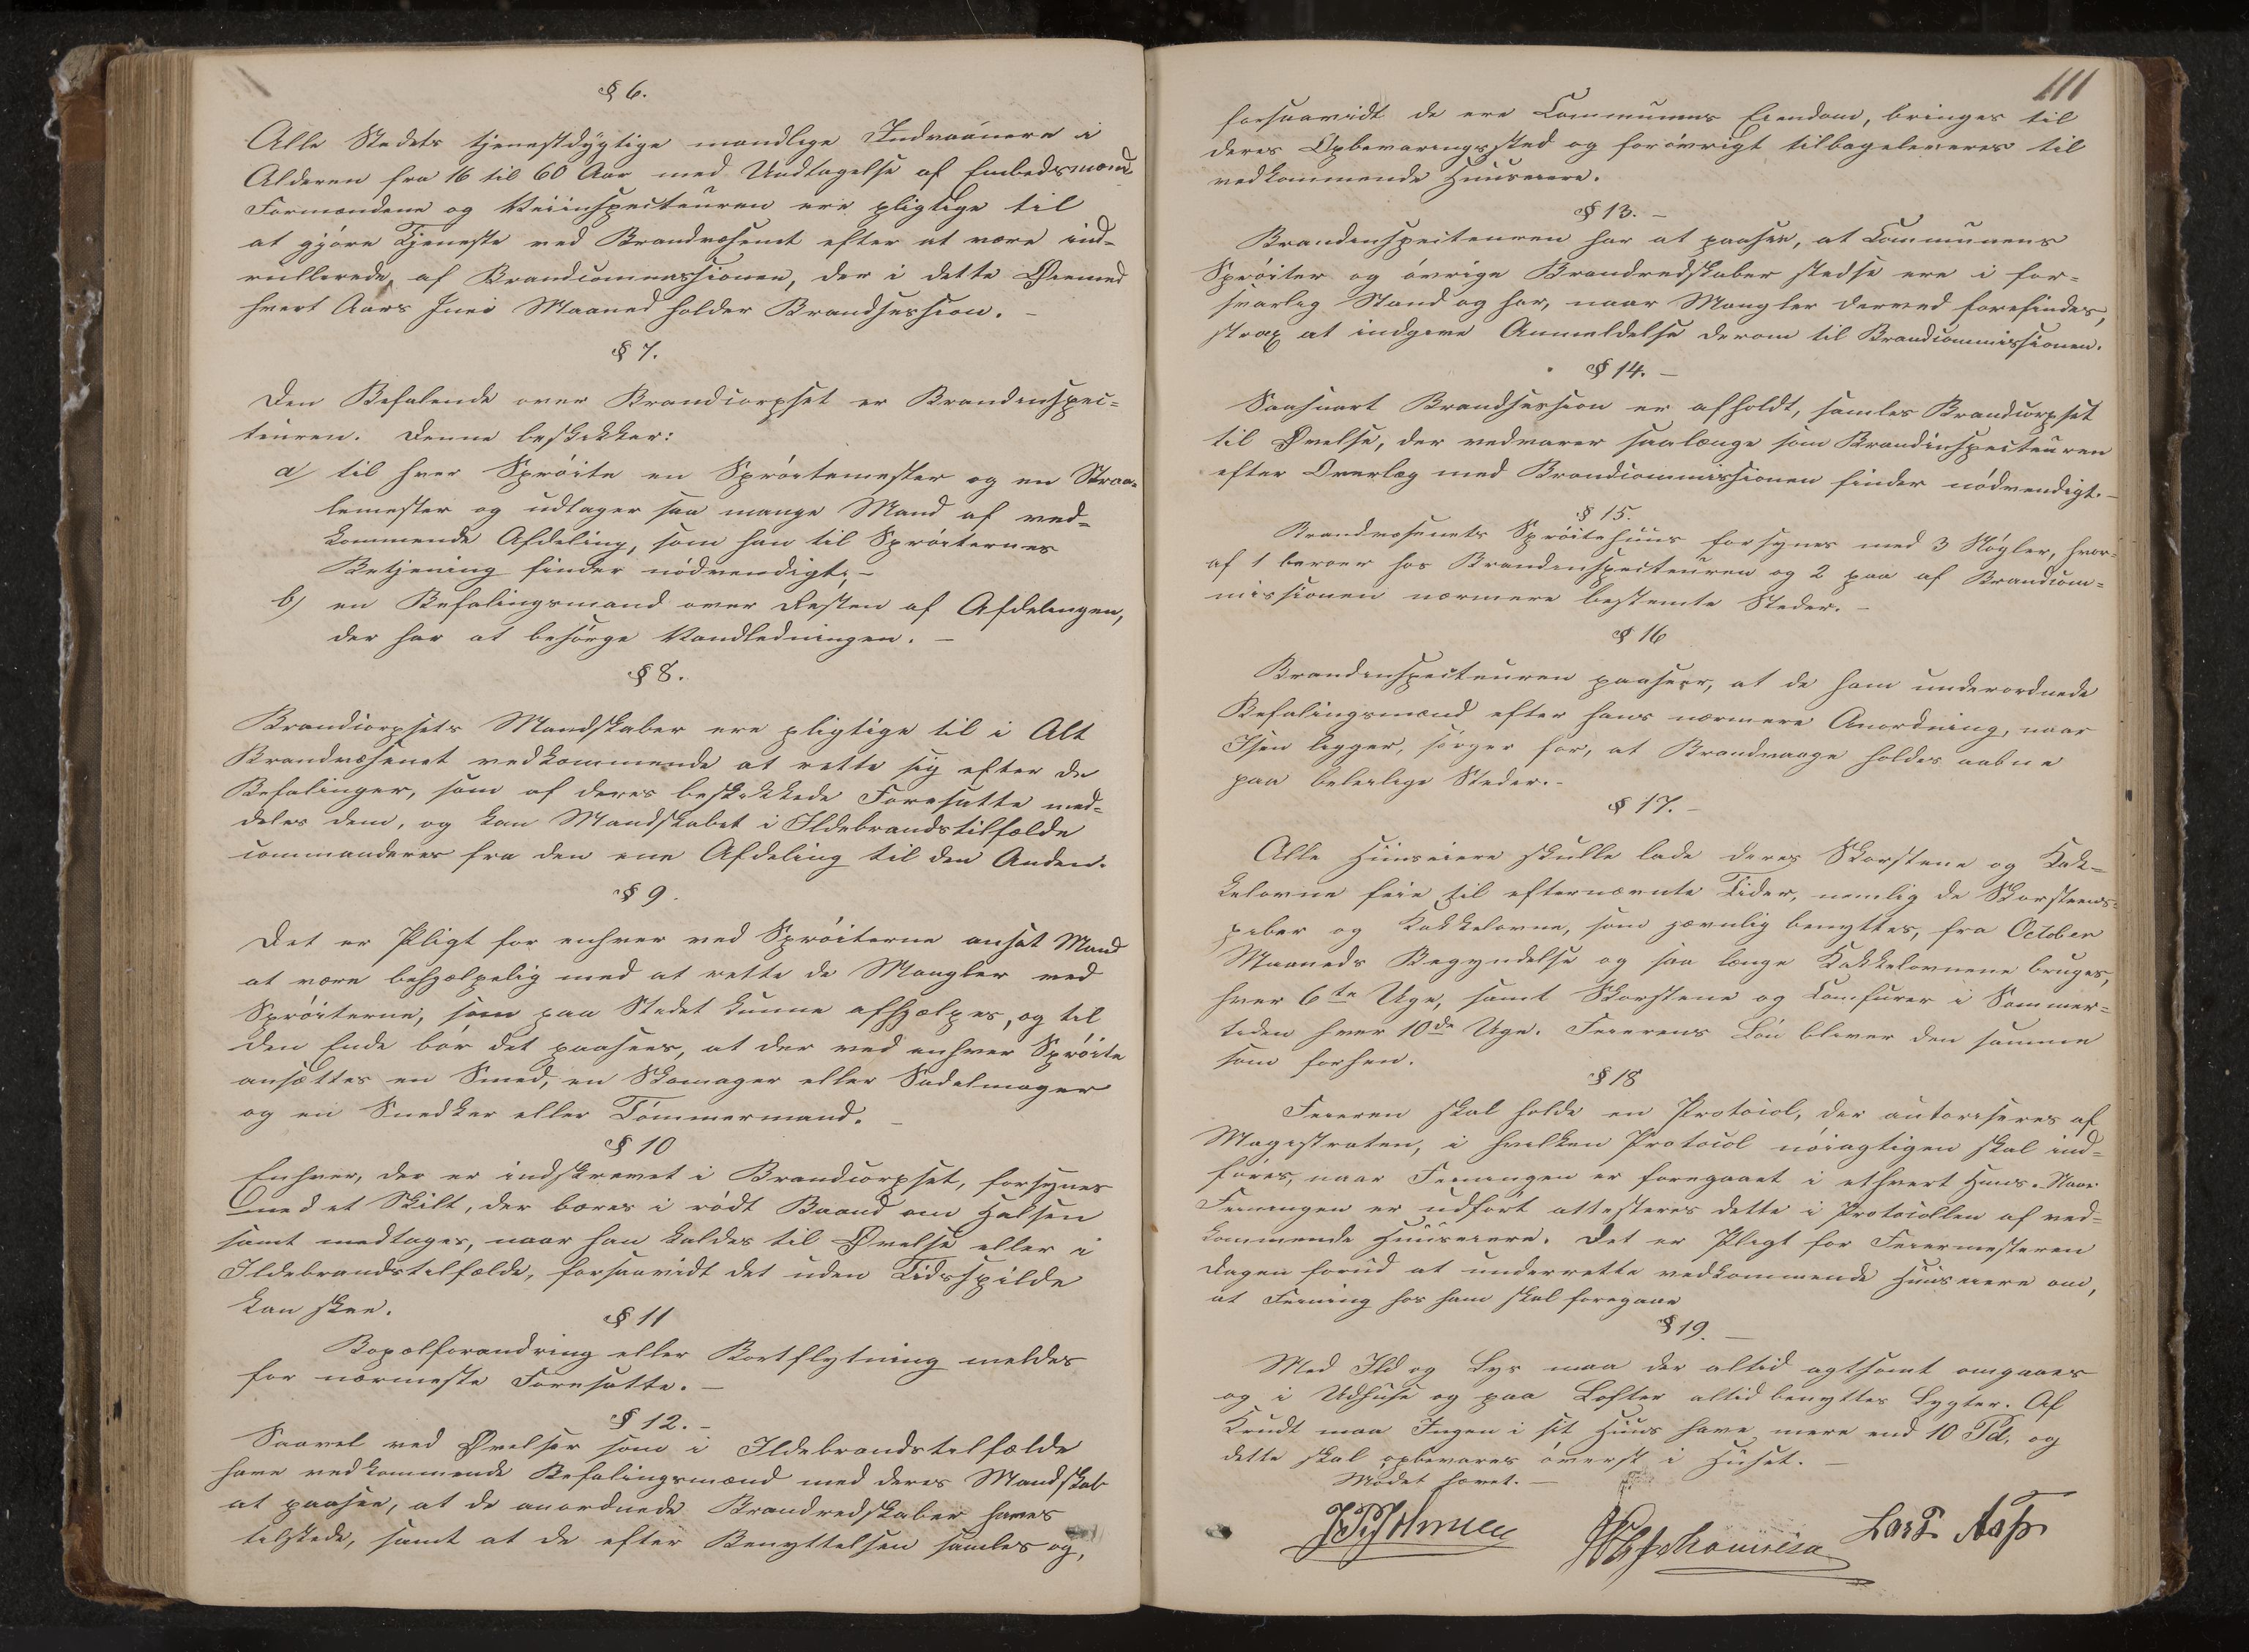 § 6.
Alle Stedets tjenestdygtige mandlige Indvaanere i
Alderen fra 16 til 60 Aar med Undtagelse af Embedsmænd
Formændene og Veiinspecteuren ere pligtige til
at gjöre Tjeneste ved Brandvæsenet efter at være ind-
rullerede af Brandcommissionen, der i dette Öiemed
hvert Aars Juni Maaned holder Brandsession. –
§ 7.
Den Befalende over Brandcorpset er Brandinspec-
teuren. Denne beskikker:
a) til hver Spröite en Spröitemester og en Straa-
lemester og udtager saa mange Mand af ved-
kommende Afdeling, som han til Spröiternes
Betjening finder nödvendigt. –
b) en Befalingsmand over Resten af Afdelingen,
der har at besörge Vandledningen. –
§ 8.
Brandcorpsets Mandskaber ere pligtige til i Alt
Brandvæsenet vedkommende at rette sig efter de
Befalinger, som af deres beskikkede Foresatte med-
deles dem, og kan Mandskabet i Ildebrandstilfælde
commanderes fra den ene Afdeling til den Anden.
§ 9.
Det er Pligt for enhver ved Spröiterne ansat Mand
at være behjælpelig med at rette de Mangler ved
Spröiterne, som paa Stedet kunne afhjælpes, og til
den Ende bör det paasees, at der ved enhver Spröite
ansættes en Smed, en Skomager eller Sadelmager
og en Snedker eller Tömmermand. –
§ 10
Enhver, der er indskrevet i Brandcorpset, forsynes
med et Skilt, der bæres i rödt Baand om Halsen
samt medtages, naar han kaldes til Övelse eller i
Ildebrandstilfælde, forsaavidt det uden Tidsspilde
kan skee.
§ 11
Bopælforandring eller Bortflytning meldes
for nærmeste Foresatte. –
§ 12. –
Saavel ved Övelser som i Ildebrandstilfælde
have vedkommende Befalingsmænd med deres Mandskab
at paasee, at de anordnede Brandredskaber haves
tilstede, samt at de efter Benyttelsen samles og,
111
forsaavidt de ere Communens Eiendom, bringes til
deres Opbevaringssted og forövrigt tilbageleveres til
vedkommende Huuseiere.
§ 13. –
Brandinspecteuren har at paasee, at Communens
Spröiter og övrige Brandredskaber stedse ere i for-
svarlig Stand og har, naar Mangler derved forefindes,
strax at indgive Anmeldelse derom til Brandcommissionen.
§ 14. –
Saasnart Brandsession er afholdt, samles Brandcorpset
til Övelse, der vedvarer saalænge som Brandinspecteuren
efter Overlæg med Brandcommissionen finder nödvendigt. –
§ 15.
Brandvæsenets Spröitehuus forsynes med 3 Nögler, hvor-
af 1 beroer hos Brandinspecteuren og 2 paa af Brandcom-
missionen nærmere bestemte Steder. –
§ 16
Brandinspecteuren paaseer, at de ham underordnede
Befalingsmænd efter hans nærmere Anordning, naar
Isen ligger, sörger for, at Brandvaage holdes aabne
paa beleilige Steder. –
§ 17. –
Alle Huuseiere skulle lade deres Skorstene og Kak-
kelovne feie til efternævnte Tider, nemlig de Skorsteens-
piber og Kakkelovne, som jævnlig benyttes, fra October
Maaneds Begyndelse og saa længe Kakkelovnene bruges,
hver 6te Uge, samt Skorstene og Comfurer i Sommer-
tiden hver 10de Uge. Feierens Lön bliver den samme
som forhen.
§ 18
Feieren skal holde en Protocol, der autoriseres af
Magistraten, i hvilken Protocol nöiagtigen skal ind-
föres, naar Feiningen er foregaaet i ethvert Huus. Naar
Feiningen er udfört attesteres dette i Protocollen af ved-
kommende Huuseiere. Det er Pligt for Feiermesteren
Dagen forud at underrette vedkommende Huuseiere om,
at Feining hos ham skal foregaae
§ 19. –
Med Ild og Lys maa der altid agtsomt omgaaes
og i Udhuse og paa Lofter altid benyttes Lygter. Af
Krudt maa Ingen i sit Huus have mere end 10 Pd. og
dette skal opbevares överst i Huset. –
Mödet hævet. –